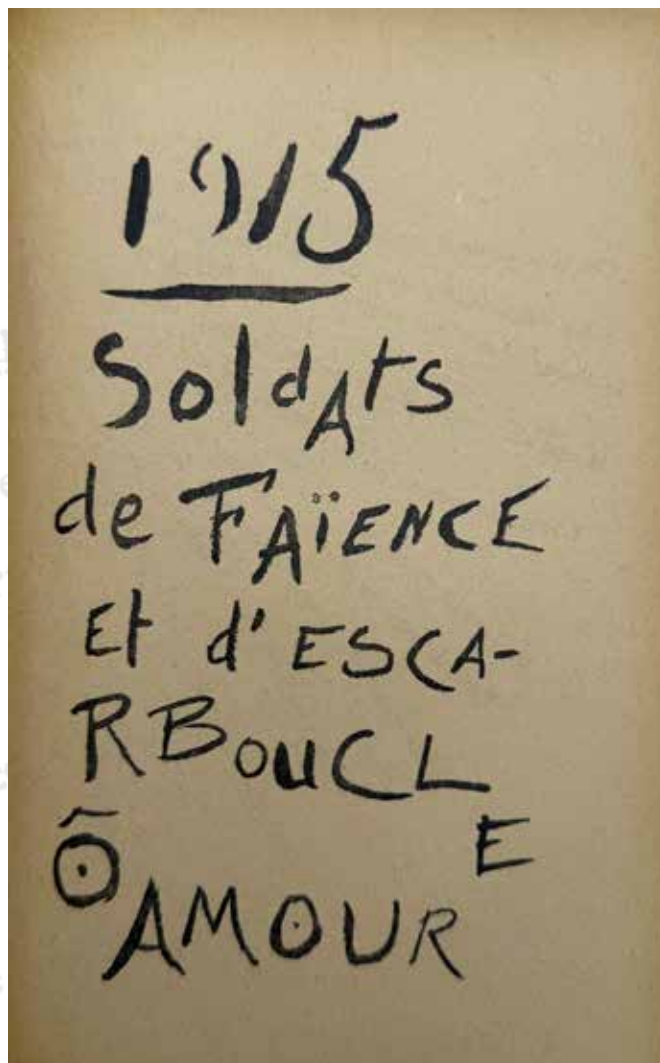 1915
SoldAts
de FAÏENCE
Et d'ESCA-
RBouCLE
Ô AMOUR